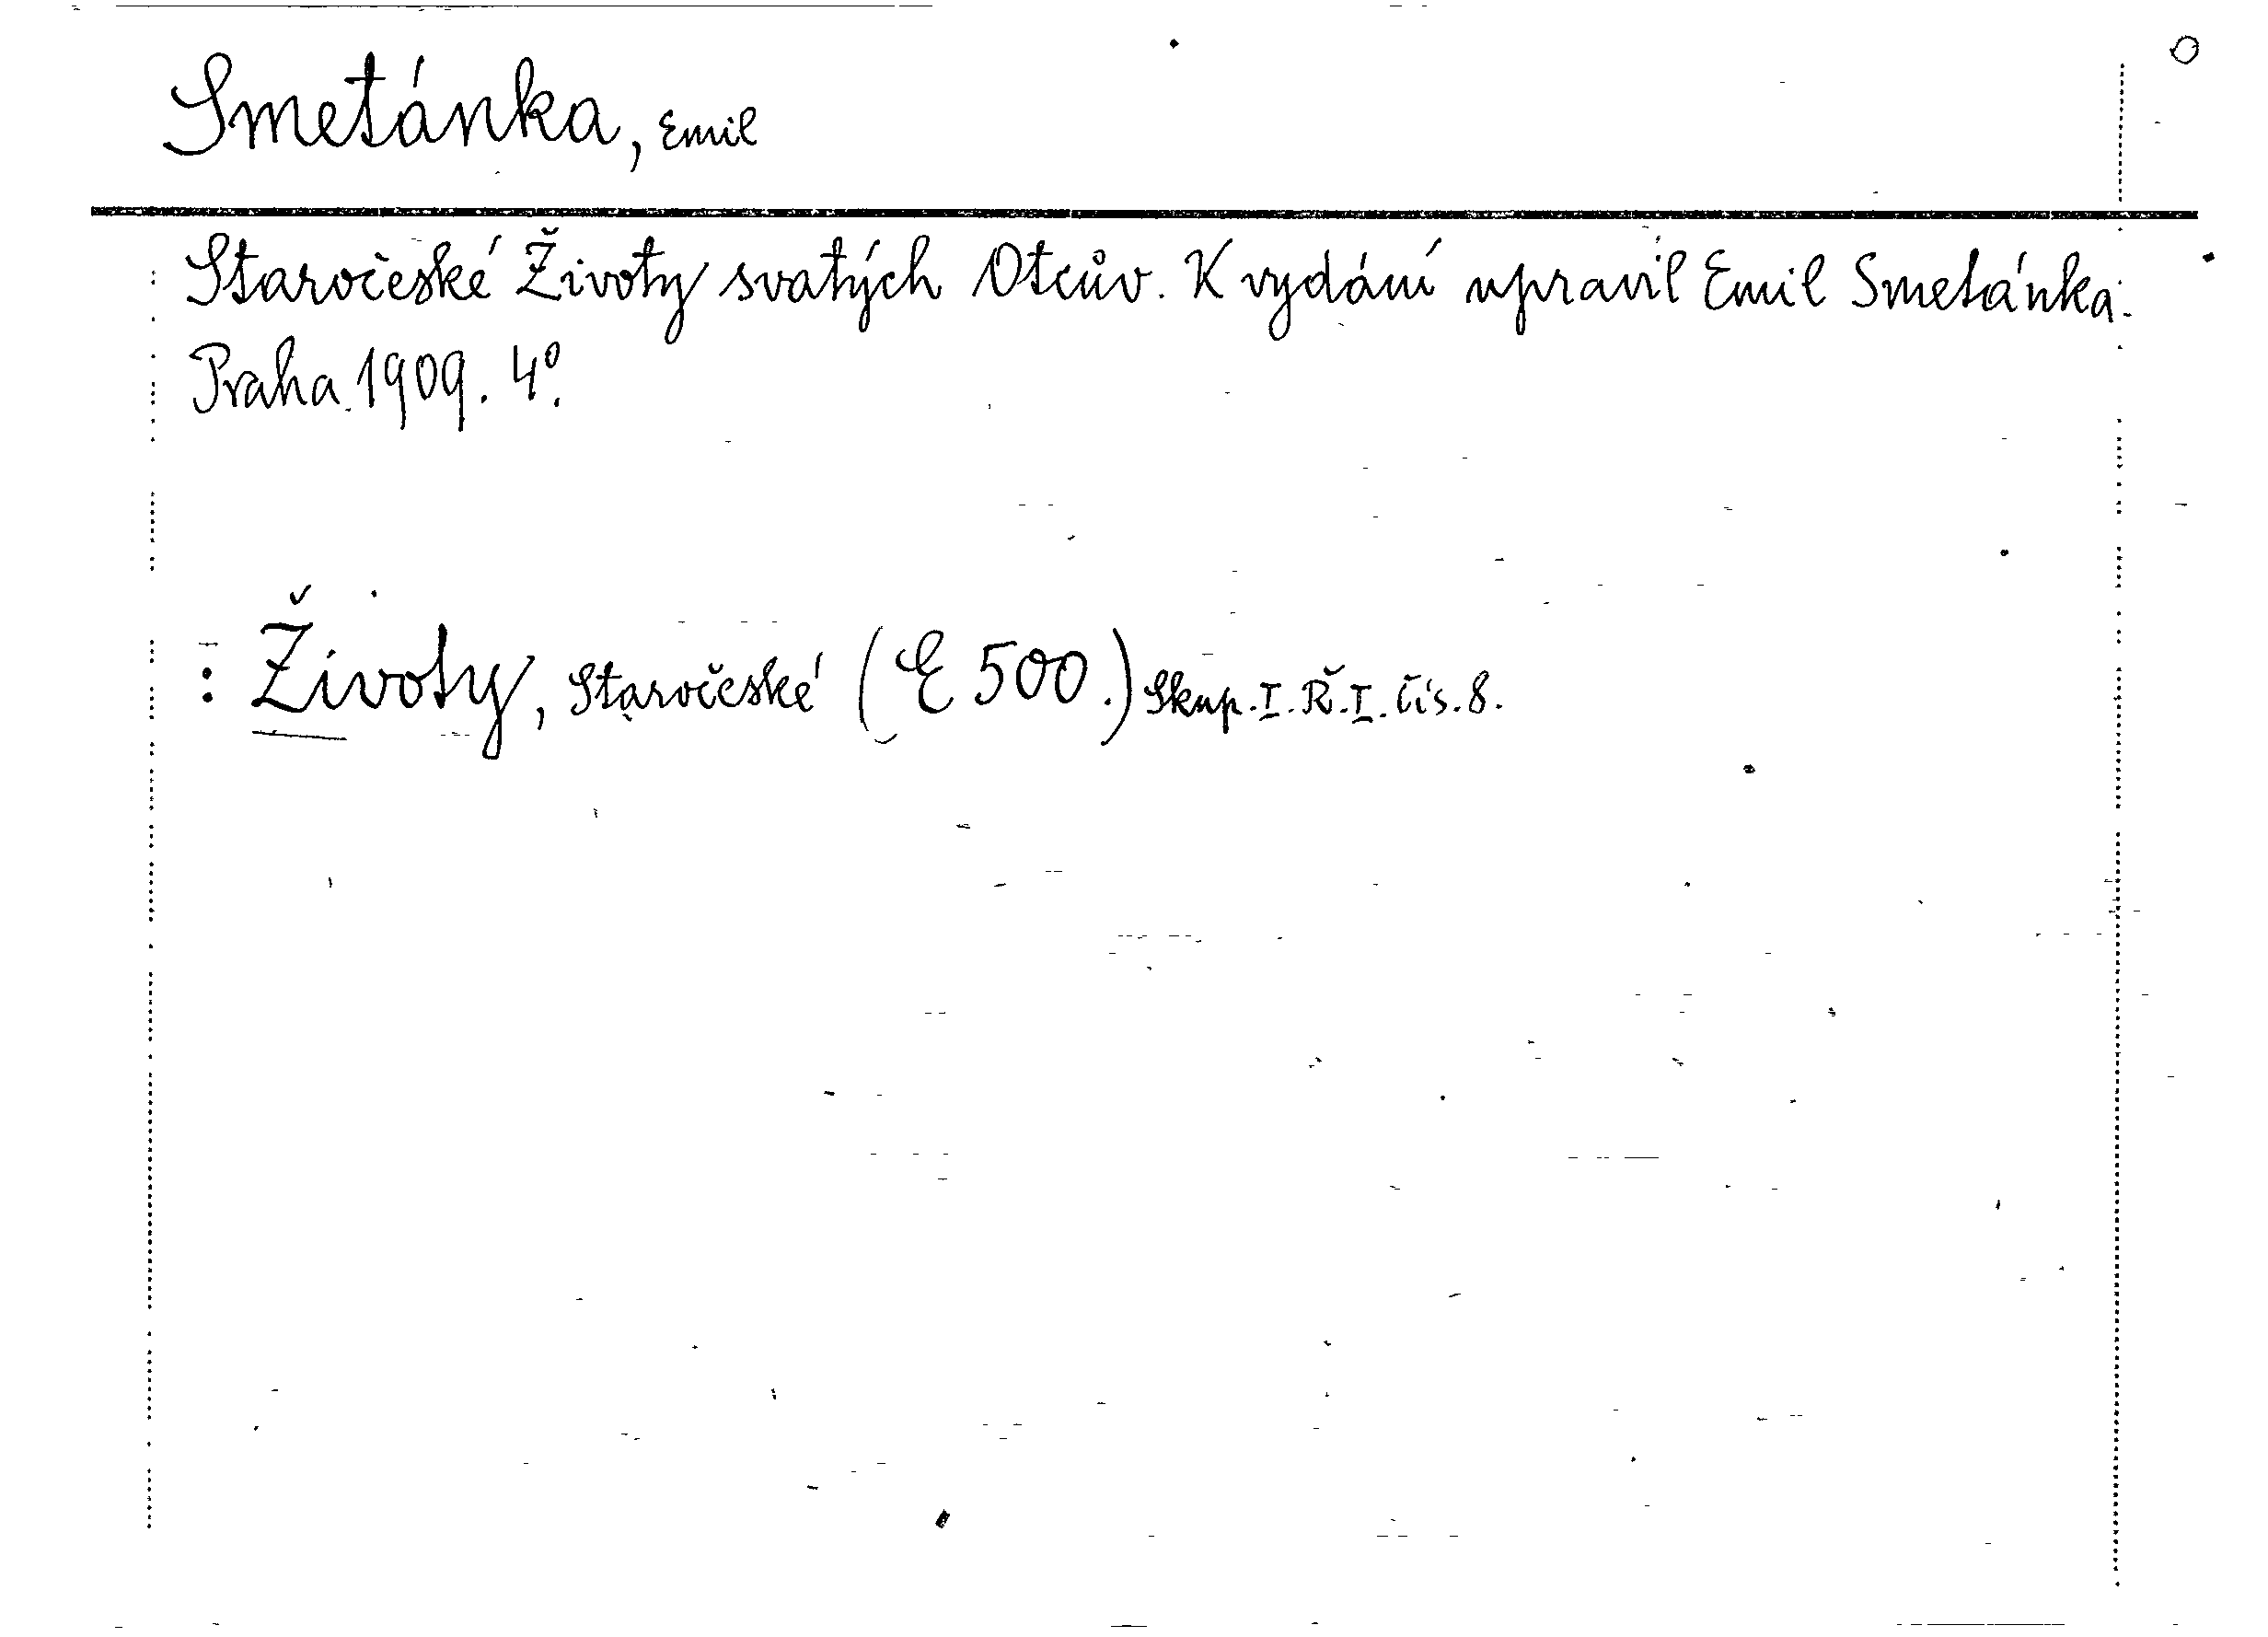 Smetánka, Emil
Staročeské Životy svatých Otcův. K vydání upravil Emil Smetánka.
Praha 1909. 4°.
: Životy, Staročeské (E 500.) Skup. I. Ř. I. čís. 8.